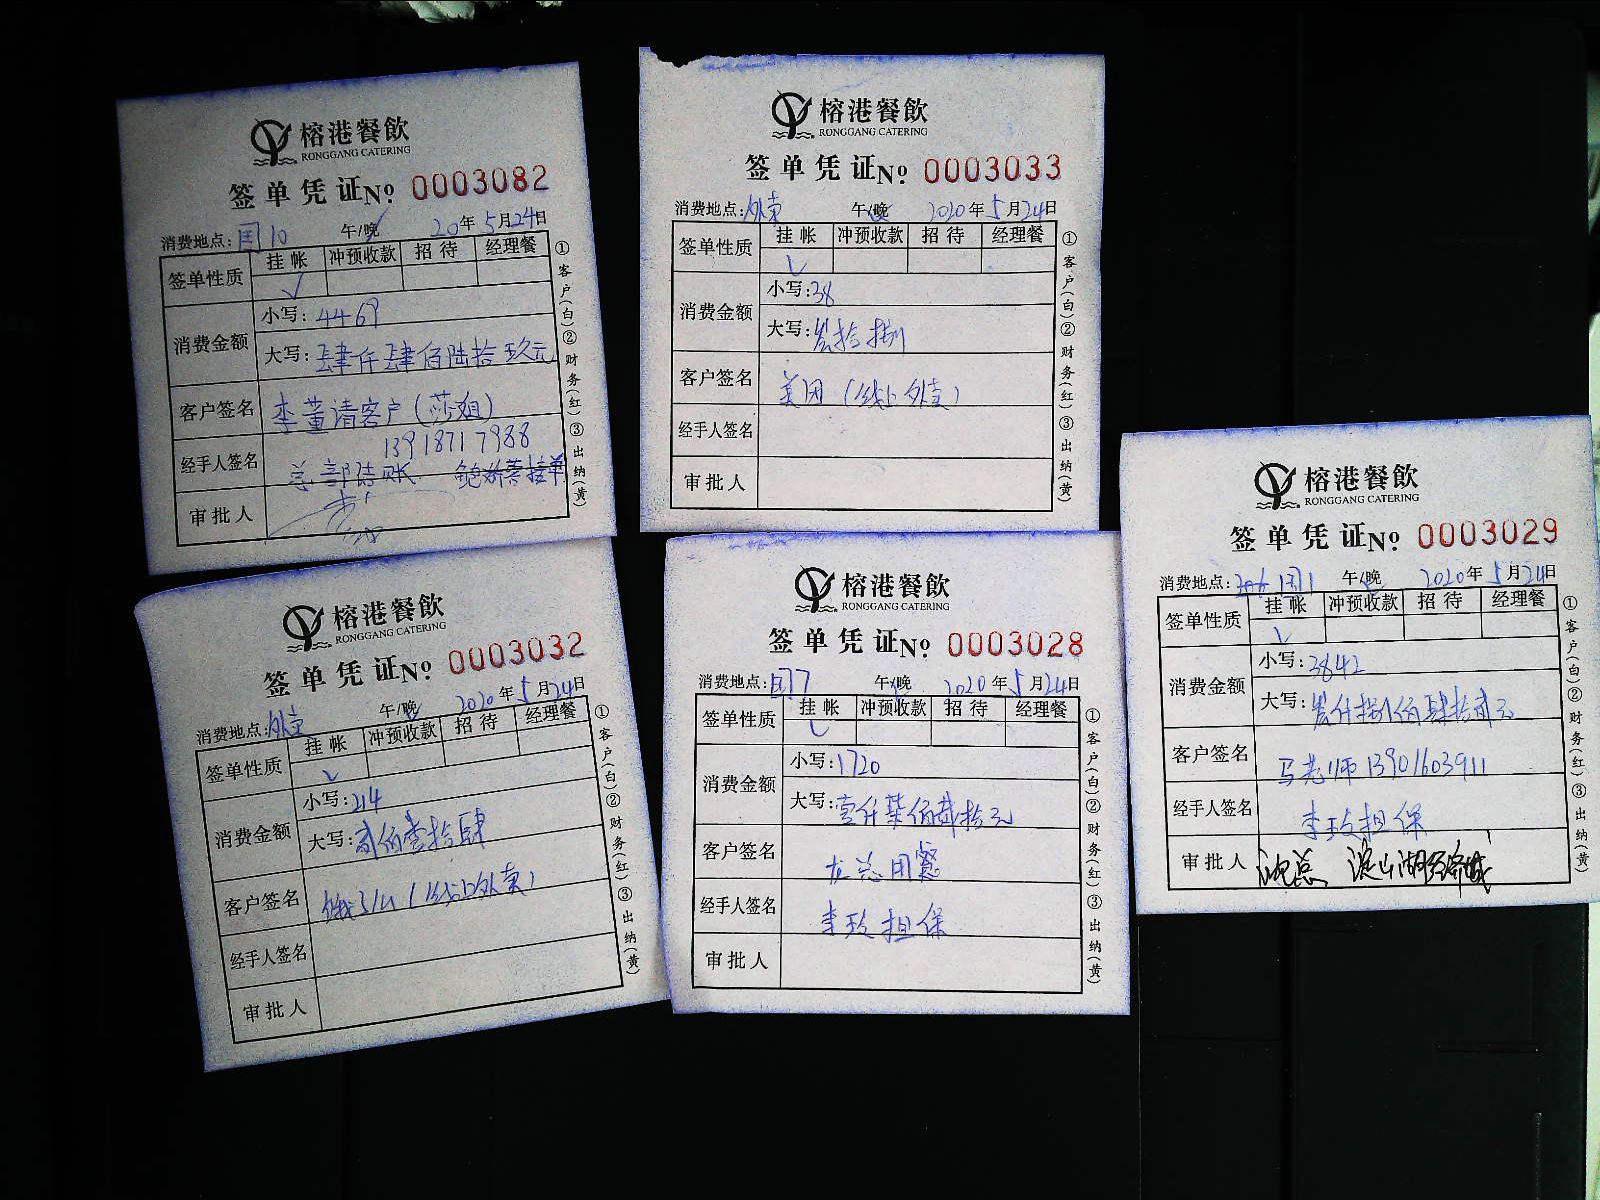 榕港餐飲
RONGGANG CATERING
签单凭证№ 0003082
消费地点: 囯10 午/晚 20年5月24日
签单性质 挂帐 冲预收款 招待 经理餐
✓
消费金额 小写: 4469
大写: 肆仟肆佰陆拾玖元
客户签名 李董请客户(莎姐)
13918717988
经手人签名 总部结账
审批人
①客户(白)②财务(红)③出纳(黄)
榕港餐飲
RONGGANG CATERING
签单凭证№ 0003033
消费地点: 外卖 午/晚 2020年5月24日
签单性质 挂帐 冲预收款 招待 经理餐
✓
消费金额 小写: 38
大写: 叁拾捌
客户签名 美团(线上外卖)
经手人签名
审批人
①客户(白)②财务(红)③出纳(黄)
榕港餐飲
RONGGANG CATERING
签单凭证№ 0003032
消费地点: 外卖 午/晚 2020年5月24日
签单性质 挂帐 冲预收款 招待 经理餐
✓
消费金额 小写: 214
大写: 贰佰壹拾肆
客户签名 饿了么(线上外卖)
经手人签名
审批人
①客户(白)②财务(红)③出纳(黄)
榕港餐飲
RONGGANG CATERING
签单凭证№ 0003028
消费地点: 囯7 午/晚 2020年5月24日
签单性质 挂帐 冲预收款 招待 经理餐
✓
消费金额 小写: 1720
大写: 壹仟柒佰贰拾元
客户签名 龙总用餐
经手人签名 李玲担保
审批人
①客户(白)②财务(红)③出纳(黄)
榕港餐飲
RONGGANG CATERING
签单凭证№ 0003029
消费地点: 囯1 午/晚 2020年5月24日
签单性质 挂帐 冲预收款 招待 经理餐
✓
消费金额 小写: 3842
大写: 叁仟捌佰肆拾贰元
客户签名 马老师 13901603911
经手人签名 李玲担保
审批人 沈总 淀山湖经济城
①客户(白)②财务(红)③出纳(黄)